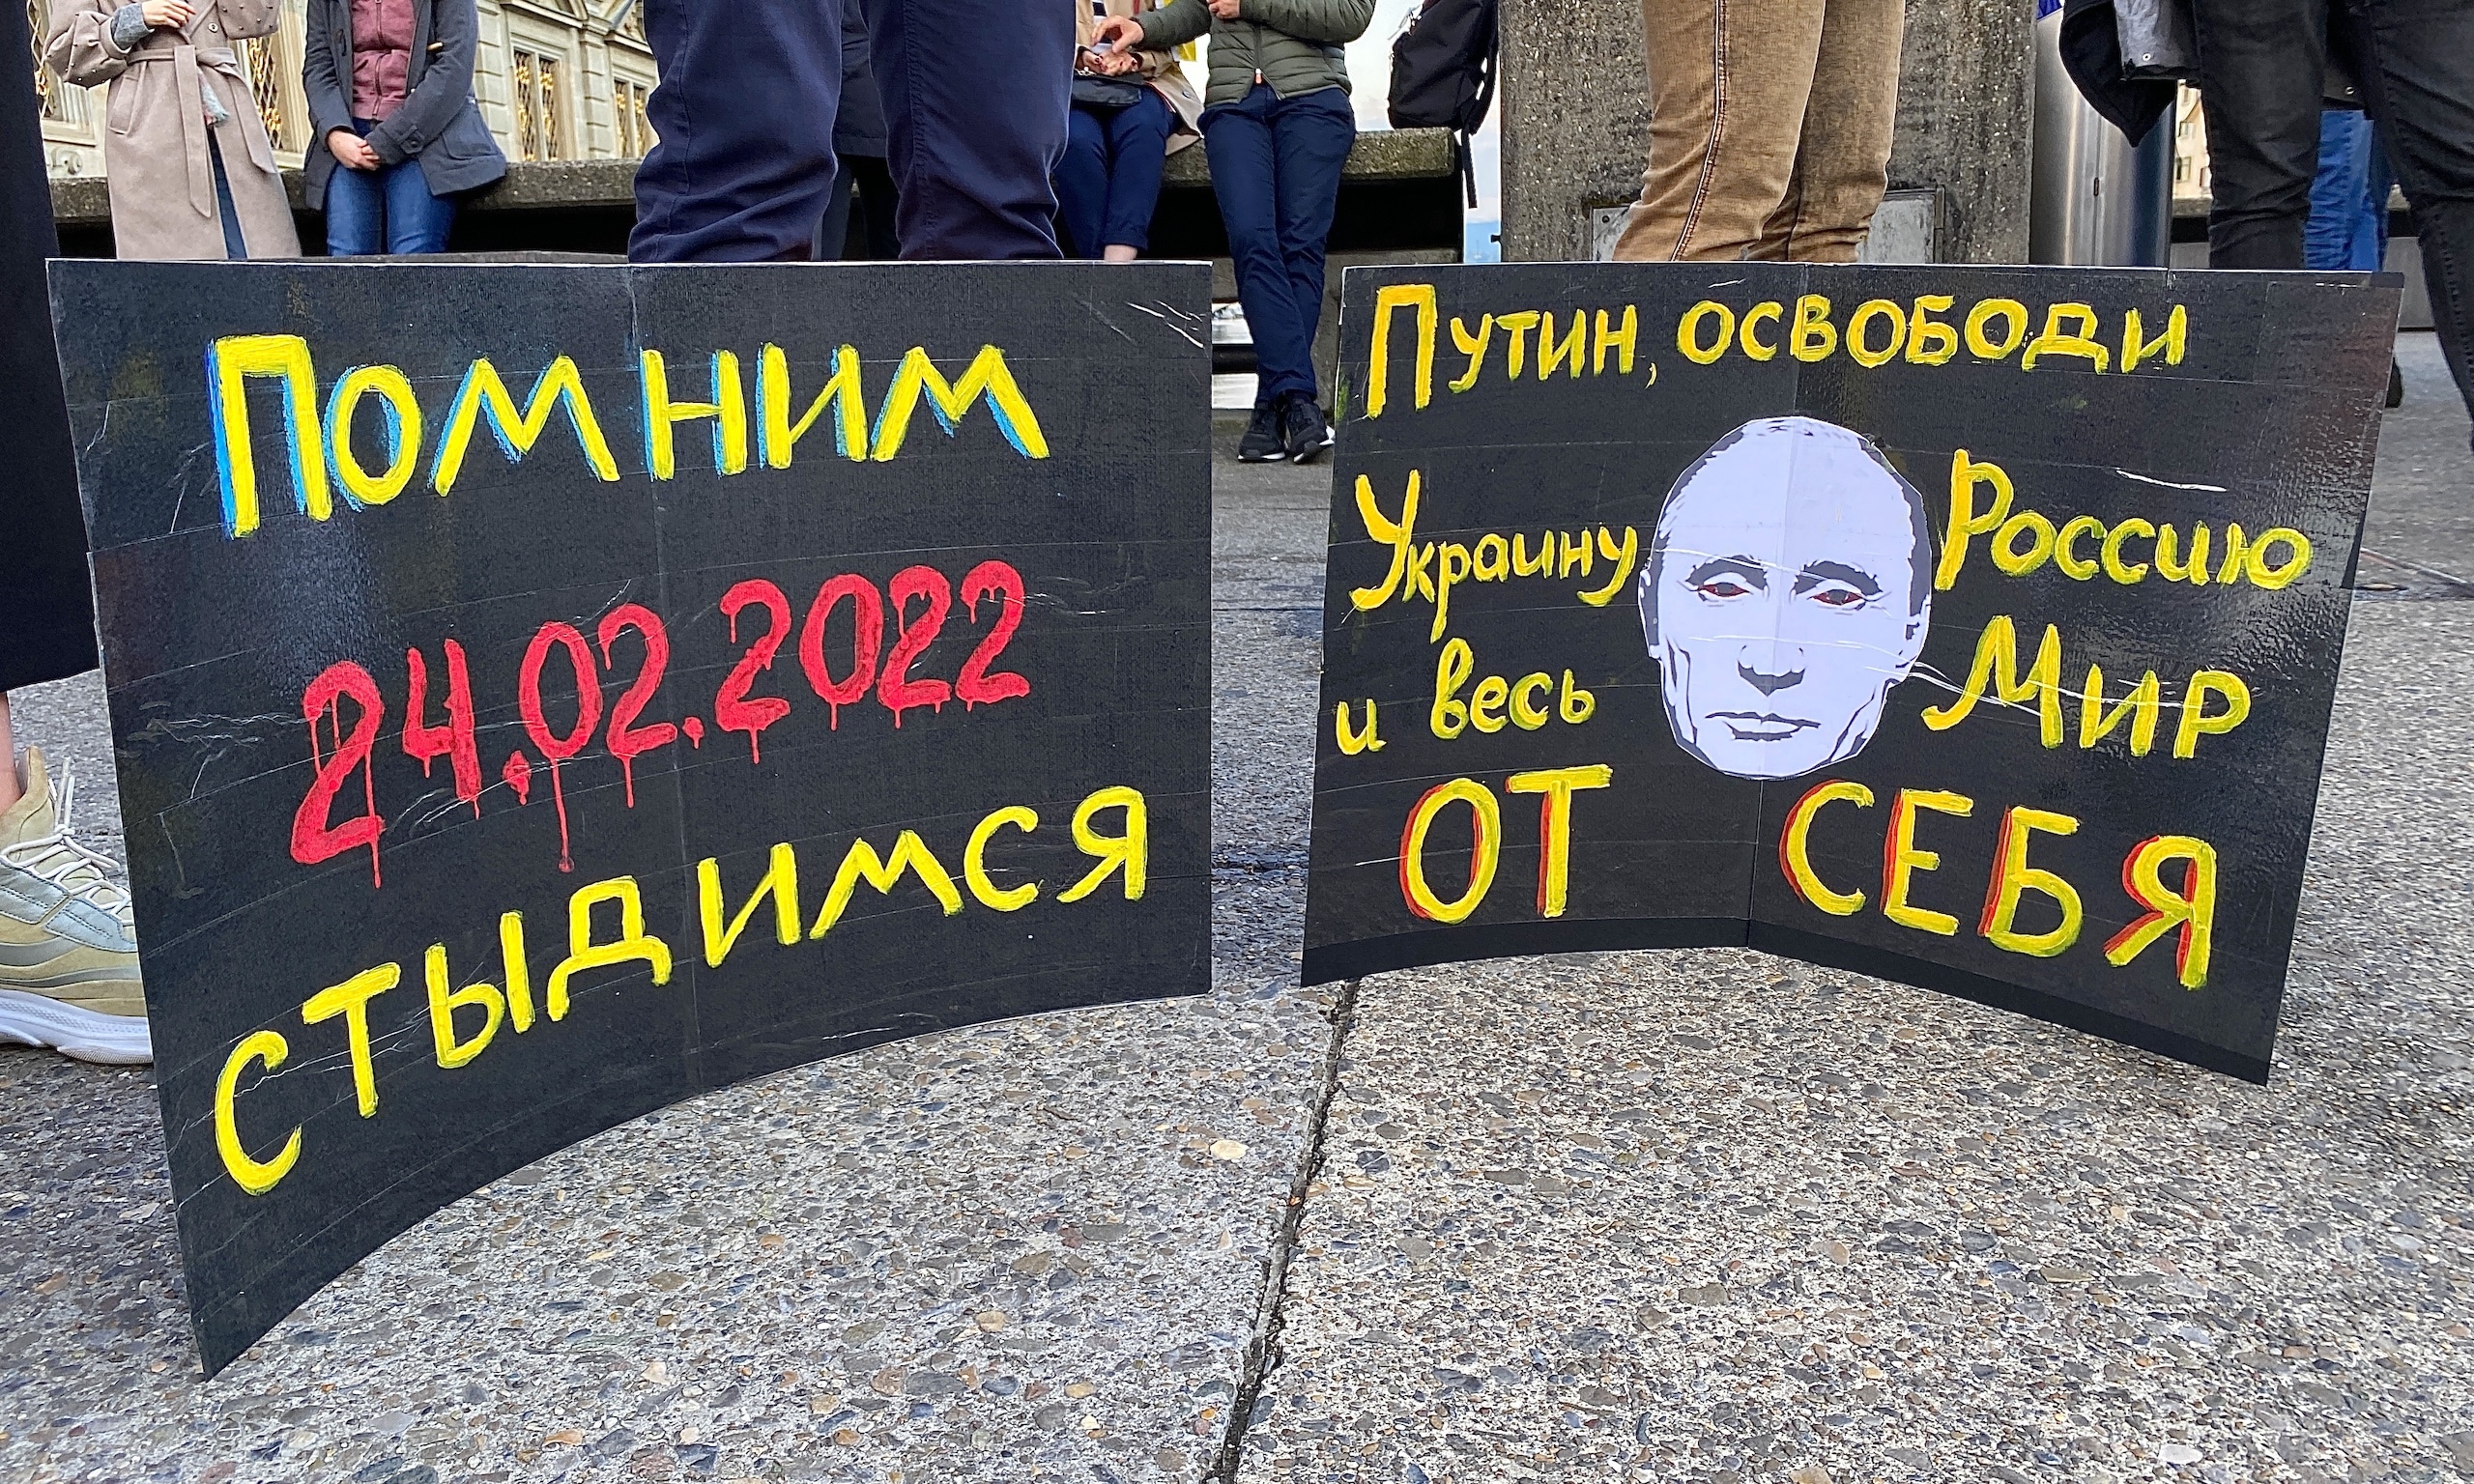 Помним
24.02.2022
стыдимся
Путин, освободи
Украину Россию
и весь Мир
ОТ СЕБЯ